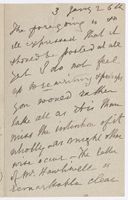 3 Jany 2
The foregoing is
expressed that it
should be posted at all
yet I do not feel
up to rewriting
you would rather
take all as it is than
miss the intention of it
wholly as might other
wise occur. The letter
of Mr. Hawkswell is
remarkably clear